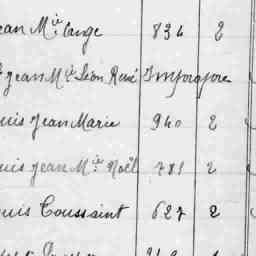 ean M.ie ange 836 2
Jean M.ie Léon René
ouis Jean Marie 940 2
ouis Jean M.ie Noël 781 2
ouis Toussaint 627 2